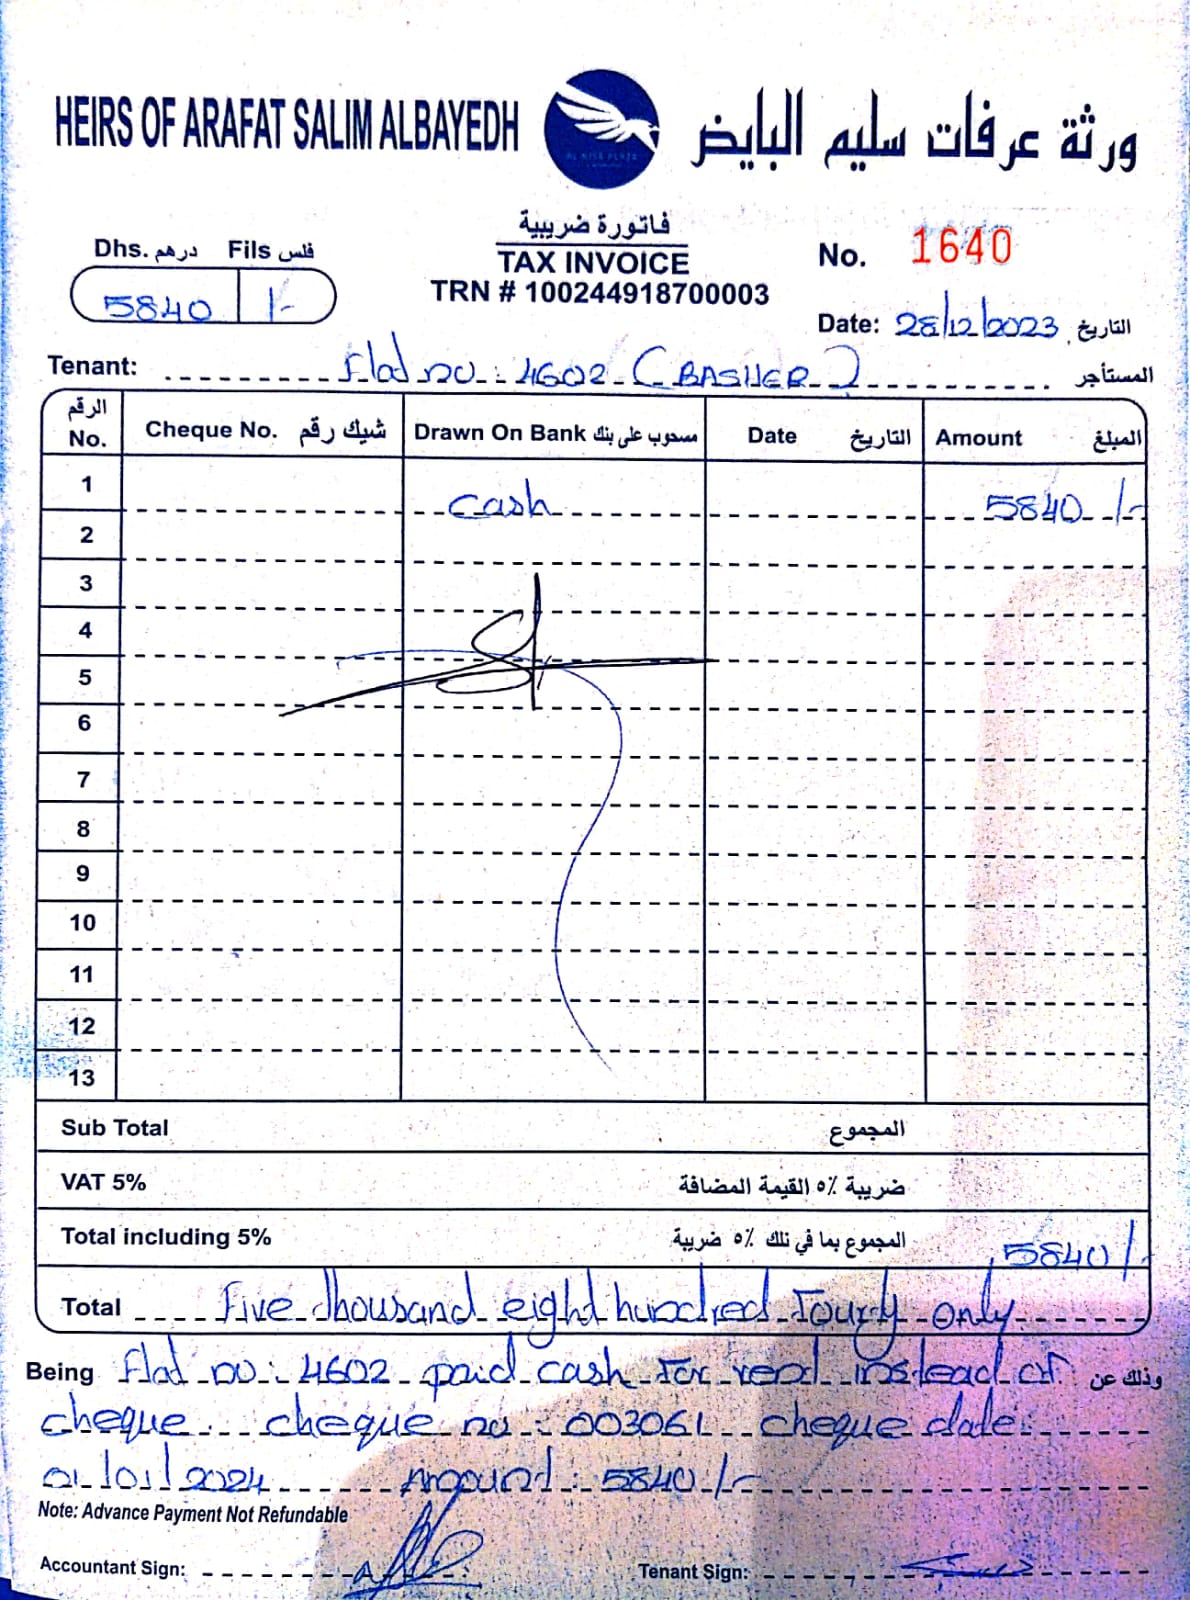 HEIRS OF ARAFAT SALIM ALBAYEDH
ورثة عرفات سليم البايض
AL NISR PLAZA
فاتورة ضريبية
TAX INVOICE
TRN # 100244918700003
Dhs. درهم Fils فلس
5840 /-
No. 1640
Date: 28/12/2023 التاريخ
Tenant: Flat no: 4602 (BASHER) المستأجر
الرقم No. Cheque No. شيك رقم Drawn On Bank مسحوب على بنك Date التاريخ Amount المبلغ
1 Cash 5840/-
2
3
4
5
6
7
8
9
10
11
12
13
Sub Total المجموع
VAT 5% ضريبة ٥٪ القيمة المضافة
Total including 5% المجموع بما في ذلك ٥٪ ضريبة 5840/-
Total Five thousand eight hundred fourty only
Being Flat no: 4602 paid cash for rent instead of وذلك عن
cheque. cheque no: 003061 cheque date:
01/01/2024 Amount: 5840/-
Note: Advance Payment Not Refundable
Accountant Sign: Tenant Sign: